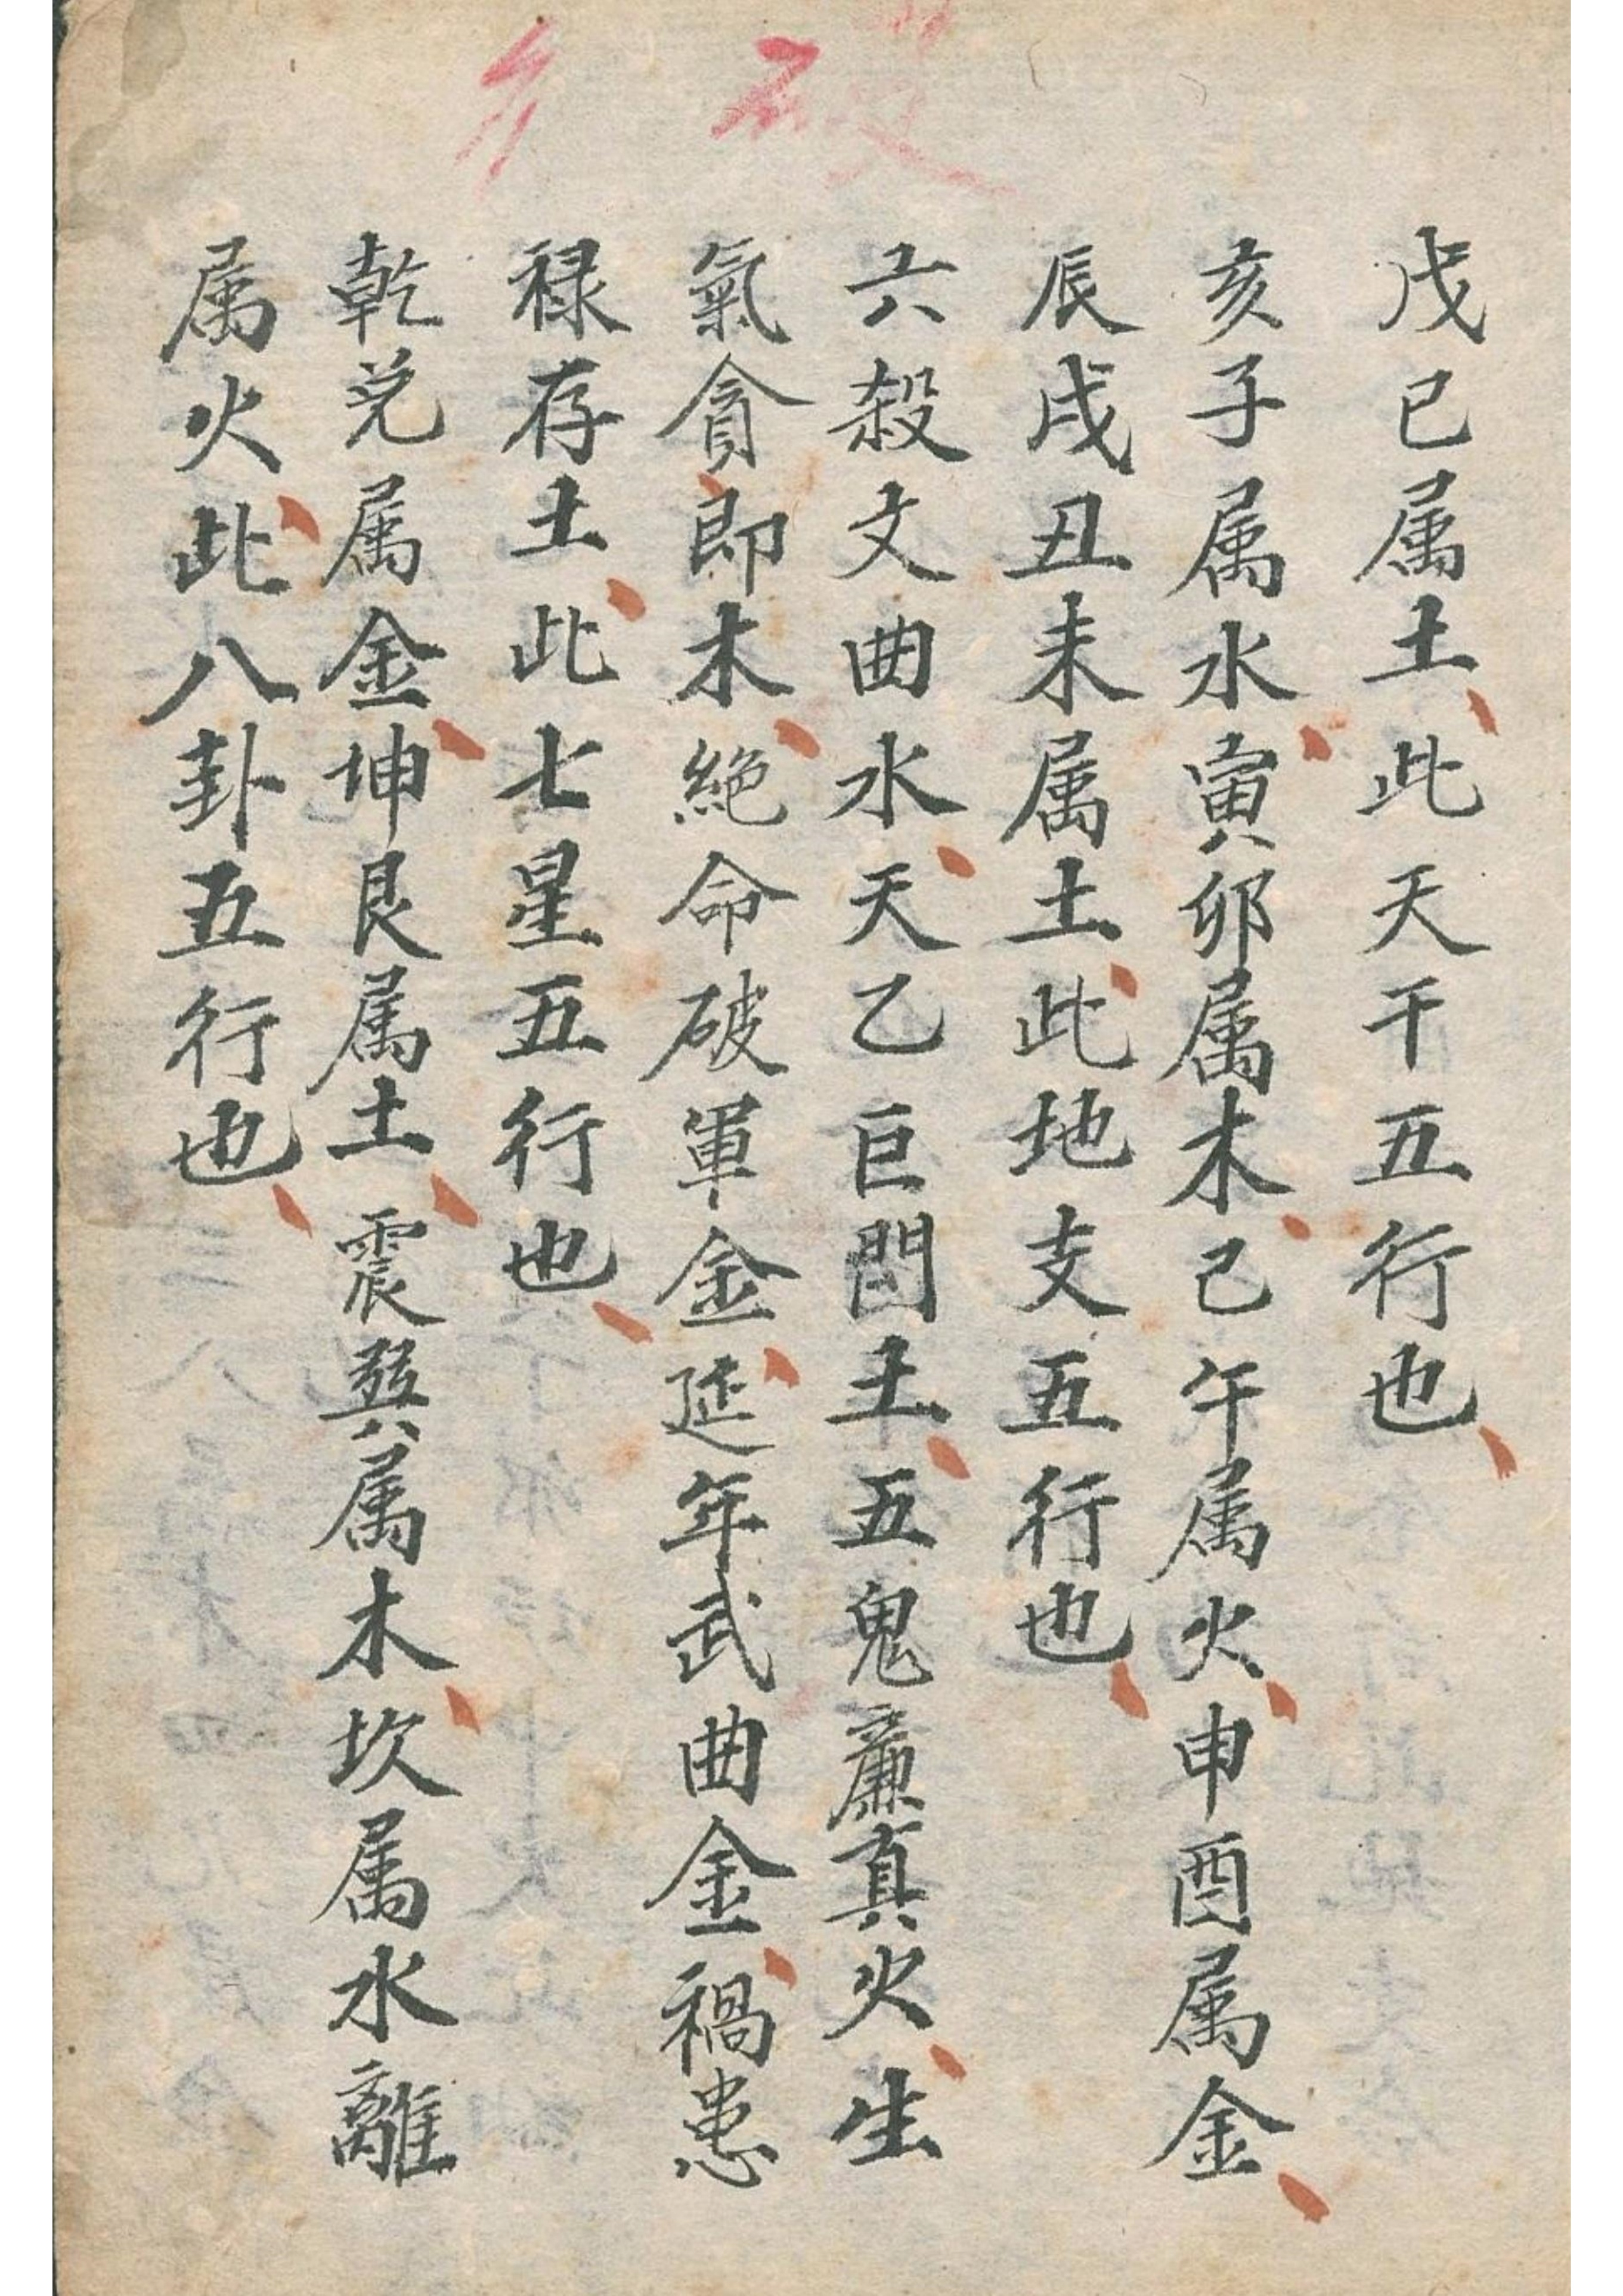 戊己属土、此天干五行也、
亥子属水、寅卯属木、己午属火、申酉属金、
辰戌丑未属土、此地支五行也、
六殺文曲水、天乙巨門土、五鬼廉真火、生
氣貪即木、絶命破軍金、延年武曲金、禍患
禄存土、此七星五行也、
乾兑属金、坤艮属土、震巽属木、坎属水離
属火、此八卦五行也、